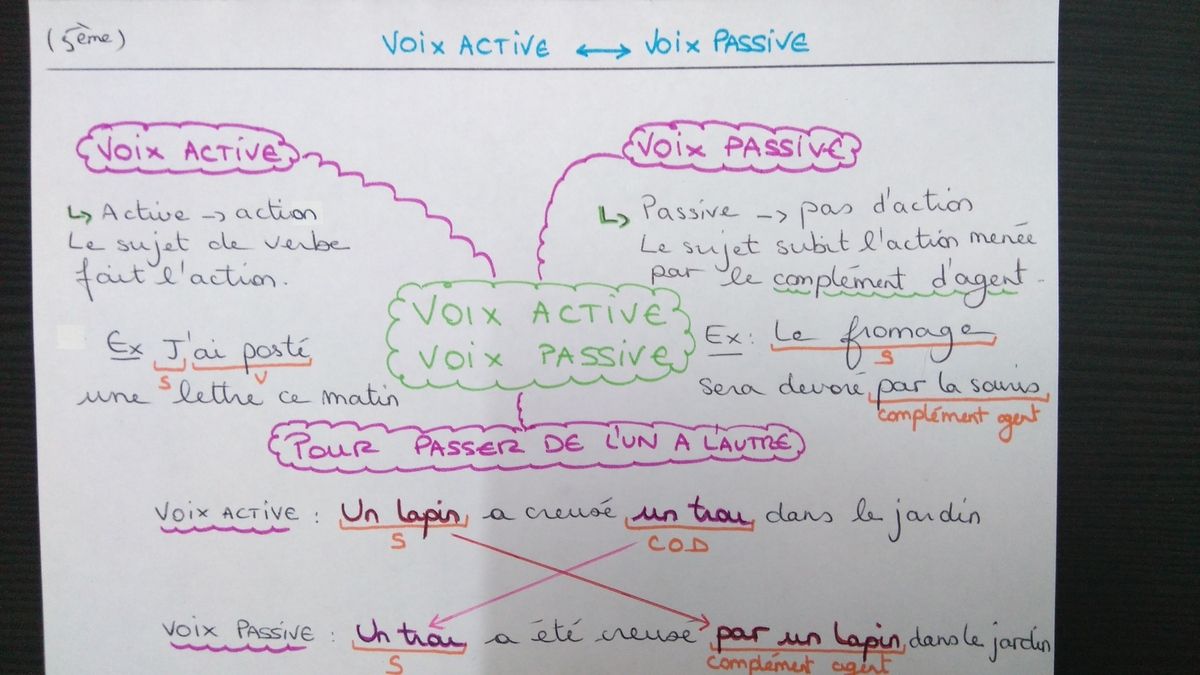 (5ème)
VOIX ACTIVE ↔ VOIX PASSIVE
VOIX ACTIVE
↳ Active → action
Le sujet de verbe
fait l'action.
Ex J'ai posté
S V
une lettre ce matin
VOIX PASSIVE
↳ Passive → pas d'action
Le sujet subit l'action menée
par le complément d'agent.
Ex : Le fromage
S
sera devoré par la souris
complément agent
VOIX ACTIVE
VOIX PASSIVE
POUR PASSER DE L'UN A L'AUTRE
VOIX ACTIVE : Un lapin a creusé un trou dans le jardin
S COD
VOIX PASSIVE : Un trou a été creuse par un lapin dans le jardin
S complément agent